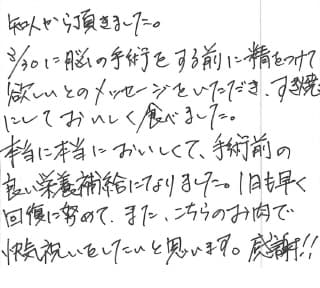 知人から頂きました。
3/30に脳の手術をする前に精をつけて
欲しいとのメッセージをいただき、すき焼
にしておいしく食べました。
本当に本当においしくて、手術前の
良い栄養補給になりました。1日も早く
回復に努めて、また、こちらのお肉で
快気祝いをしたいと思います。感謝!!